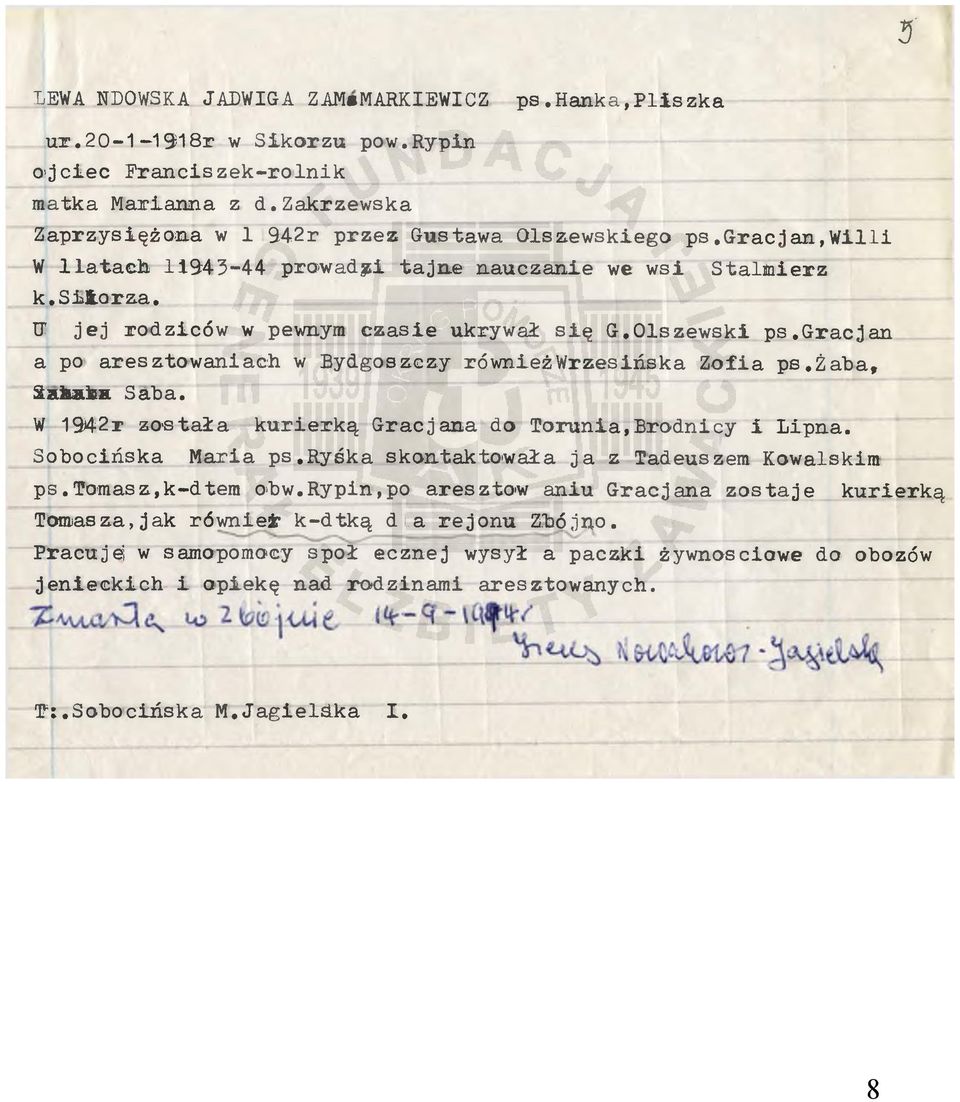 5
LEWANDOWSKA JADWIGA ZAM.MARKIEWICZ ps.Hanka,Pliszka
ur.20-1-1918r w Sikorzu pow.Rypin
ojciec Franciszek-rolnik
matka Marianna z d.Zakrzewska
Zaprzysiężona w 1 942r przez Gustawa Olszewskiego ps.Gracjan,Willi
W llatach 11943-44 prowadzi tajne nauczanie we wsi Stalmierz
k.Sikorza.
U jej rodziców w pewnym czasie ukrywał się G.Olszewski ps.Gracjan
a po aresztowaniach w Bydgoszczy równieżWrzesińska Zofia ps.Żaba,
Saba.
W 1942r została kurierką Gracjana do Torunia,Brodnicy i Lipna.
Sobocińska Maria ps.Ryśka skontaktowała ja z Tadeuszem Kowalskim
ps.Tomasz,k-dtem obw.Rypin,po aresztow aniu Gracjana zostaje kurierką
Tomasza,jak również k-dtką d a rejonu Zbójno.
Pracuje w samopomocy społ ecznej wysył a paczki żywnosciowe do obozów
jenieckich i opiekę nad rodzinami aresztowanych.
Zmarła w Zbójnie 14-9-1994r
Irena Nowakowa-Jagielska
T:.Sobocińska M.Jagielska I.
FUNDACJA GENERAŁ ELŻBIETY ZAWACKIEJ
POMORZE
1939 1945
8